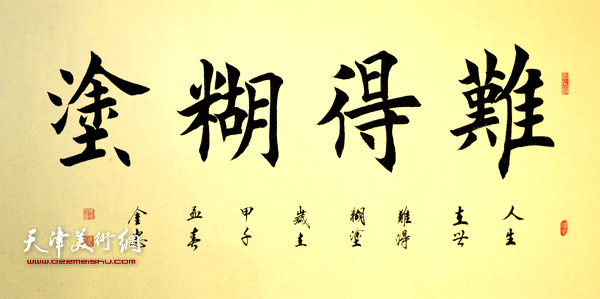 難得糊塗
人生
在世
難得
糊塗
歲在
甲子
孟春
天津美術網
www.022meishu.com